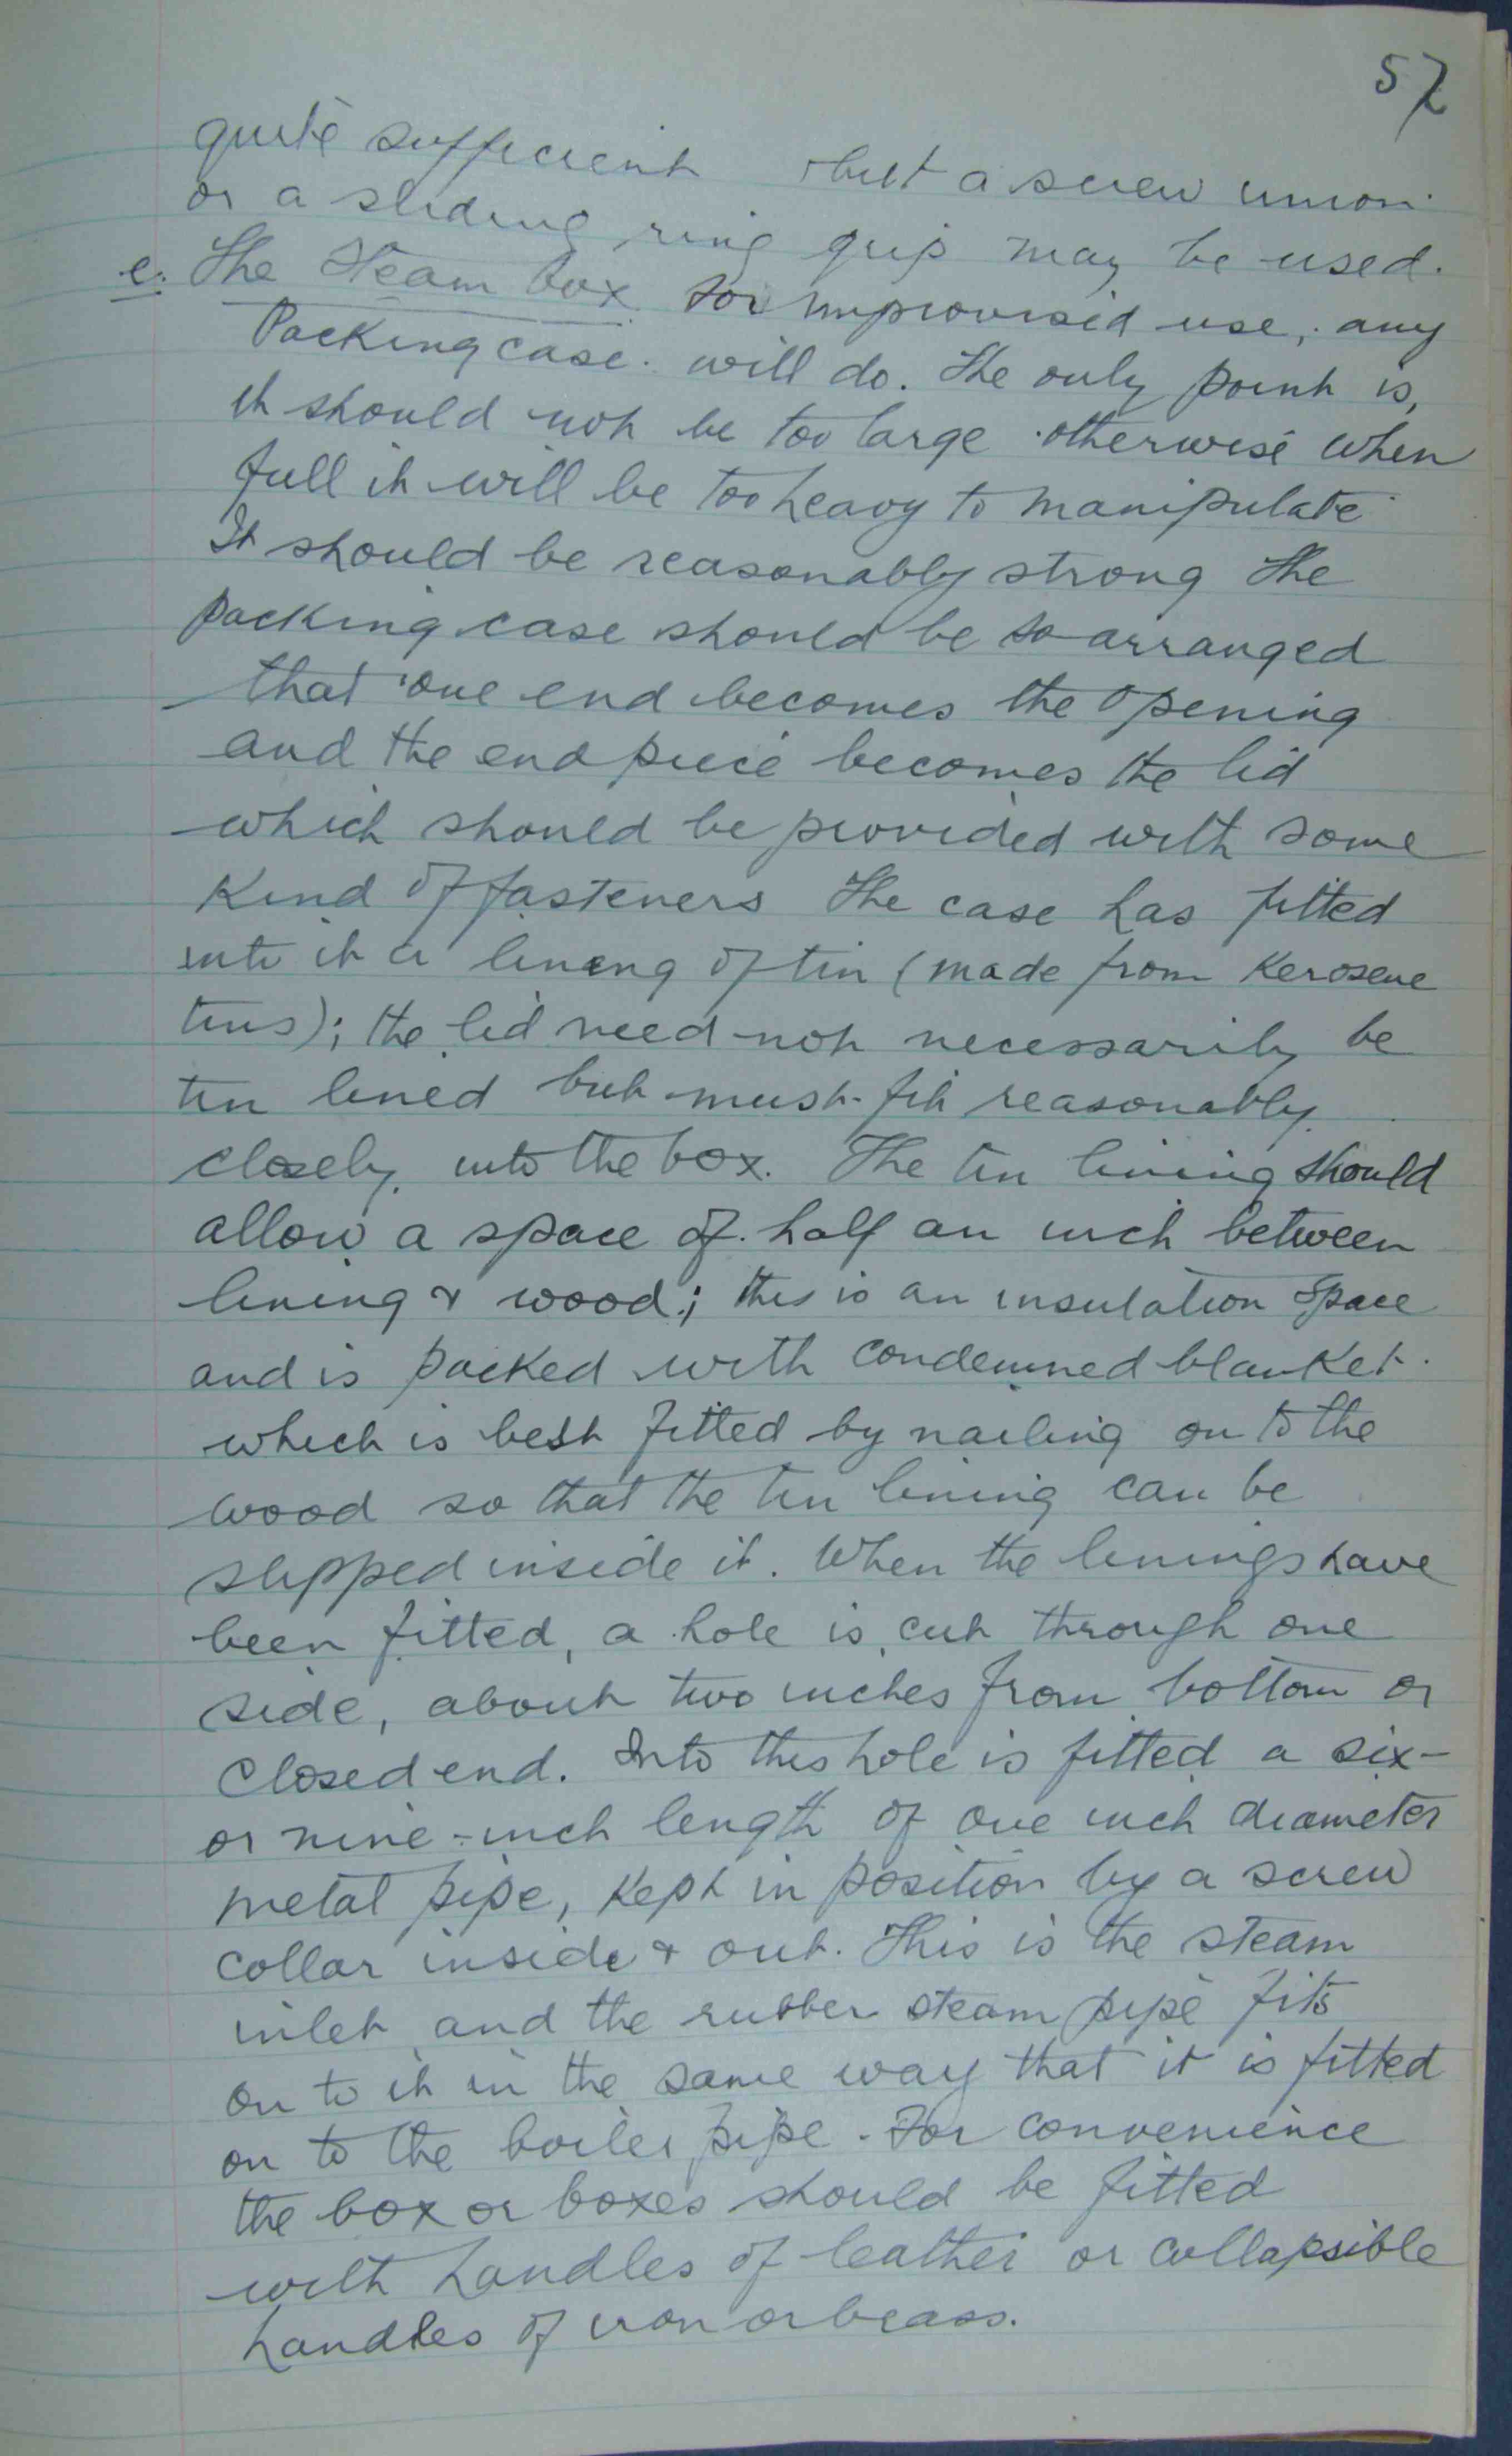 57
quite sufficient but a screw union
or a sliding ring grip may be used.
c. The Steam box for improvised use, any
Packing case will do. The only point is,
it should not be too large otherwise when
full it will be too heavy to manipulate
It should be reasonably strong The
packing case should be so arranged
that one end becomes the opening
and the end piece becomes the lid
which should be provided with some
kind of fasteners The case has fitted
into it a lining of tin (made from Kerosene
tins); the lid need not necessarily be
tin lined but must fit reasonably
closely into the box. The tin lining should
allow a space of half an inch between
lining & wood; this is an insulation space
and is packed with condemned blanket
which is best fitted by nailing on to the
wood so that the tin lining can be
slipped inside it. When the linings have
been fitted, a hole is cut through one
side, about two inches from bottom or
closed end. Into this hole is fitted a six-
or nine-inch length of one inch diameter
metal pipe, kept in position by a screw
collar inside & out. This is the steam
inlet and the rubber steam pipe fits
on to it in the same way that it is fitted
on to the boiler pipe. For convenience
the box or boxes should be fitted
with handles of leather or collapsible
handles of iron or brass.